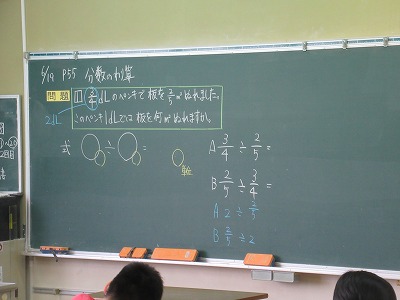 6/19 P55 分数のわり算
問題 1 3/4 dLのペンキで板を 2/5 ㎡ぬれました。
2dL このペンキ1dLでは板を何㎡ぬれますか。
式 ÷ =
単位
A 3/4 ÷ 2/5 =
B 2/5 ÷ 3/4 =
A 2 ÷ 2/5
B 2/5 ÷ 2